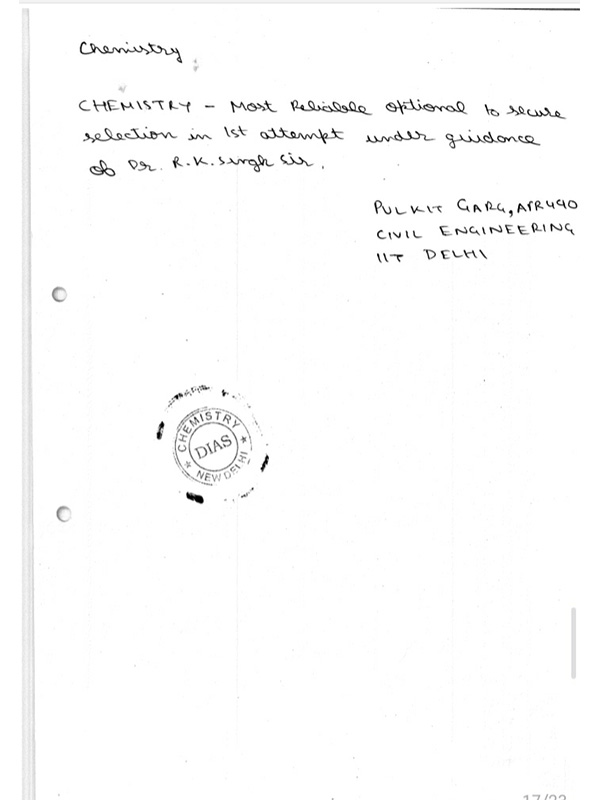 Chemistry
CHEMISTRY - Most Reliable optional to secure
selection in 1st attempt under guidance
of Dr. R.K. Singh Sir.
PULKIT GARG,
CIVIL ENGINEERING
IIT DELHI
CHEMISTRY
DIAS
NEW DELHI